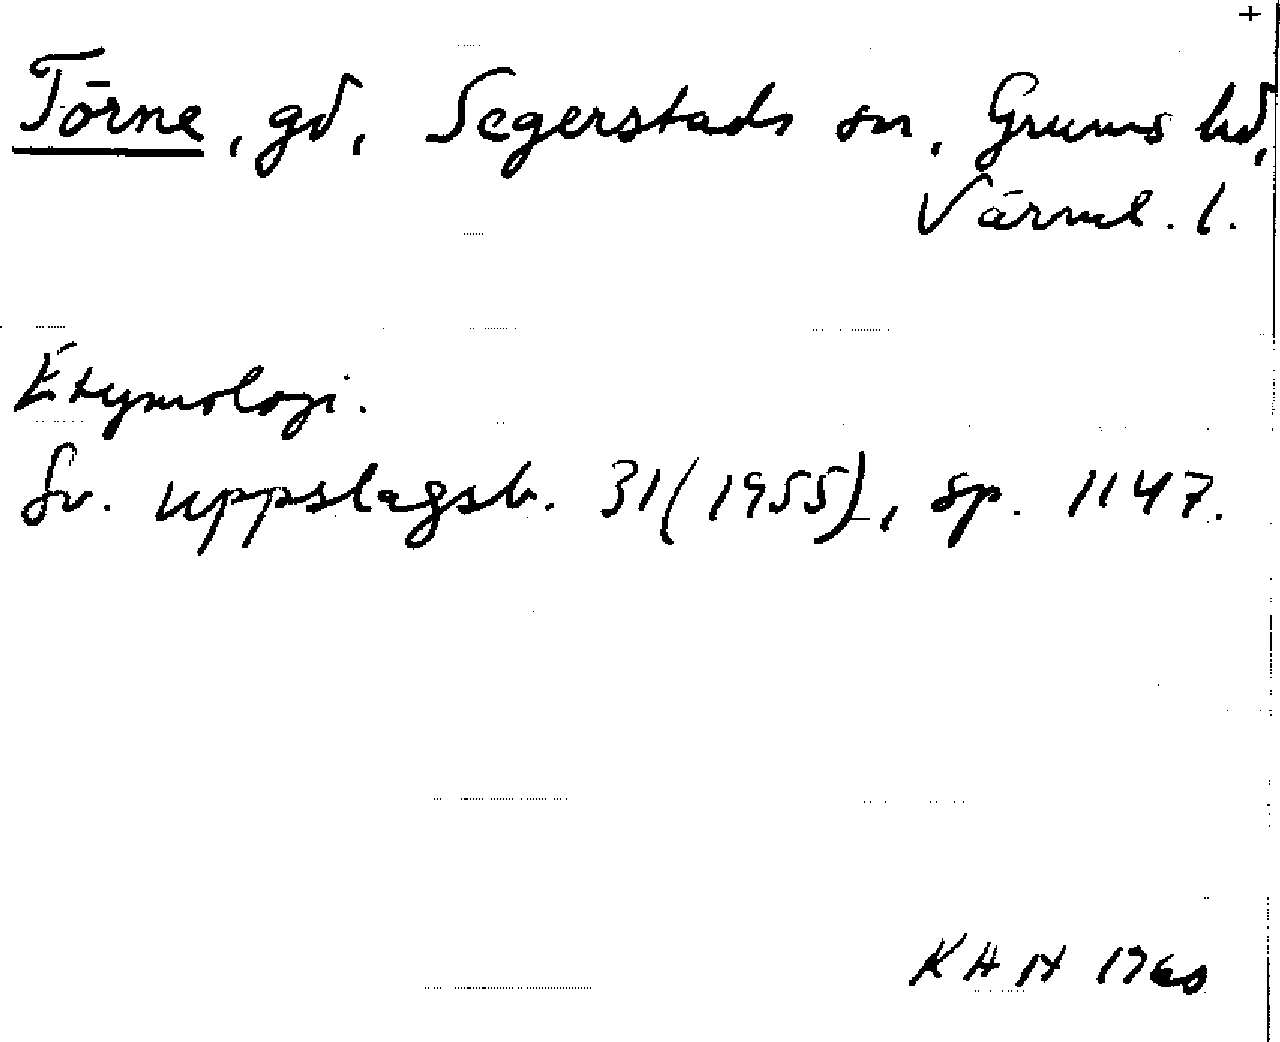 +
Törne, gd, Segerstads sn, Grums hd,
Värml. l.
Etymologi.
Sv. uppslagsb. 31 (1955), sp. 1147.
KHN 1960